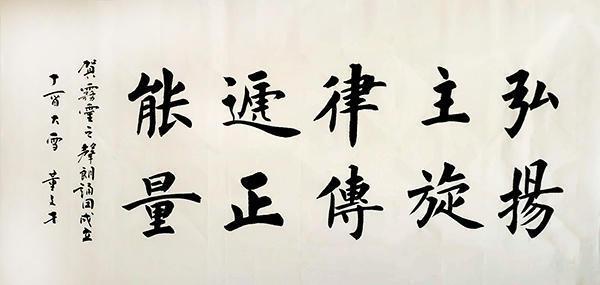 弘揚
主旋
律傳
遞正
能量
賀霧靈之聲朗誦团成立
丁酉大雪 董